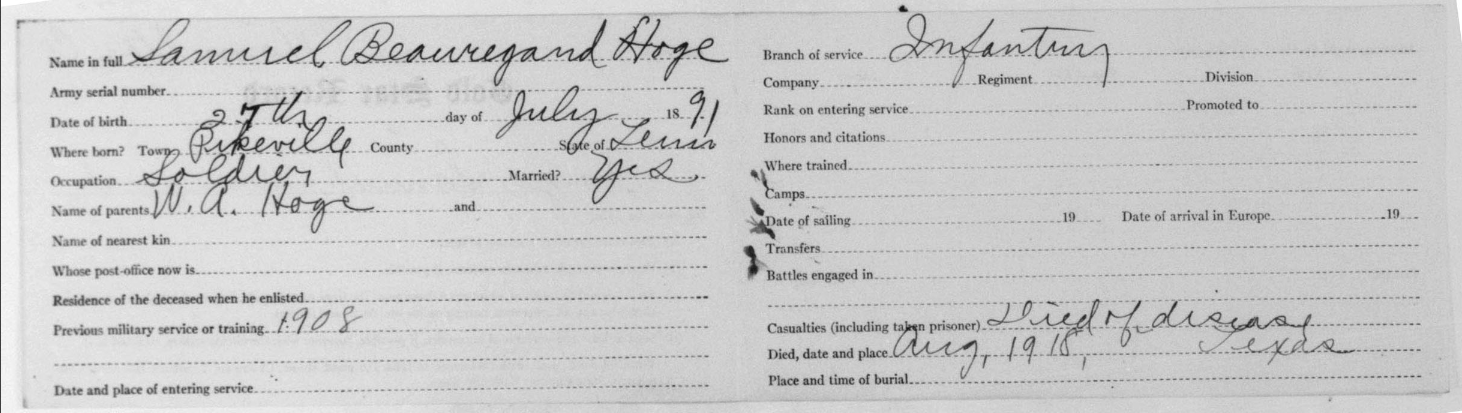 Name in full Samuel Beauregard Hoge
Army serial number
Date of birth 27th day of July 1891
Where born? Town Pikeville County State of Tenn
Occupation Soldier Married? Yes
Name of parents W. A. Hoge and
Name of nearest kin
Whose post-office now is
Residence of the deceased when he enlisted
Previous military service or training 1908
Date and place of entering service
Branch of service Infantry
Company Regiment Division
Rank on entering service Promoted to
Honors and citations
Where trained
Camps
Date of sailing 19 Date of arrival in Europe 19
Transfers
Battles engaged in
Casualties (including taken prisoner) Died of disease
Died, date and place Aug, 1918, Texas
Place and time of burial